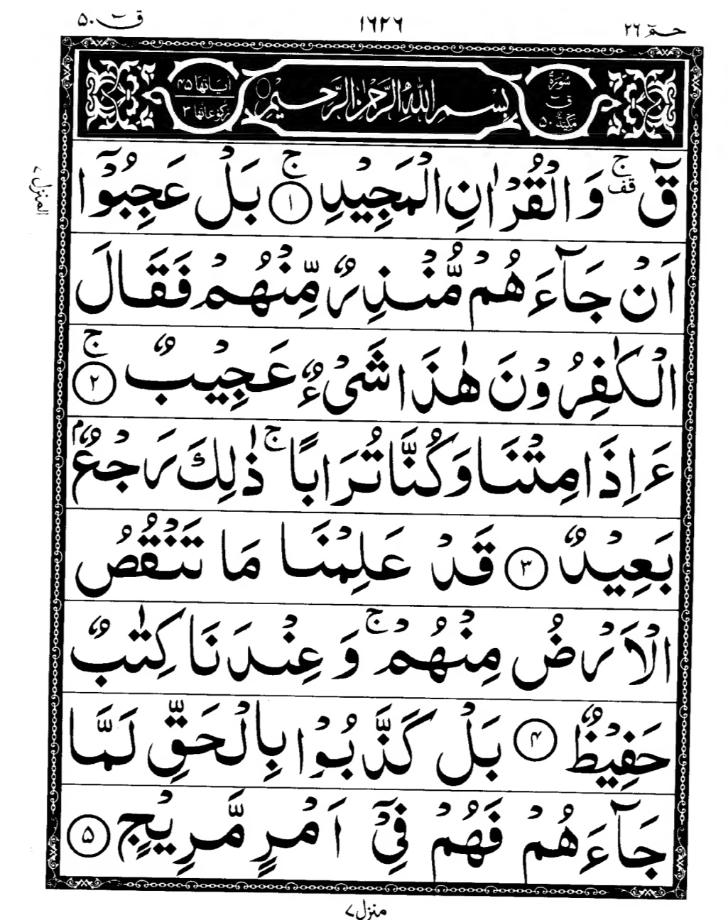 حٰمٓ ٢٦
١٦٢٦
قٓ ٥٠
سُوْرَةُ قٓ مَكِّيَّةٌ ٥٠
بِسْمِ اللهِ الرَّحْمٰنِ الرَّحِيْمِ
اٰيَاتُهَا ٤٥
رُكُوْعَاتُهَا ٣
المنزل ٧
قٓ ۚ قف وَالْقُرْاٰنِ الْمَجِيْدِ ۚ ١ بَلْ عَجِبُوْٓا
اَنْ جَآءَهُمْ مُّنْذِرٌ مِّنْهُمْ فَقَالَ
الْكٰفِرُوْنَ هٰذَا شَىْءٌ عَجِيْبٌ ۚ ٢
ءَاِذَا مِتْنَا وَكُنَّا تُرَابًا ۚ ذٰلِكَ رَجْعٌۢ
بَعِيْدٌ ٣ قَدْ عَلِمْنَا مَا تَنْقُصُ
الْاَرْضُ مِنْهُمْ ۚ وَعِنْدَنَا كِتٰبٌ
حَفِيْظٌ ٤ بَلْ كَذَّبُوْا بِالْحَقِّ لَمَّا
جَآءَهُمْ فَهُمْ فِىْٓ اَمْرٍ مَّرِيْجٍ ٥
منزل ٧